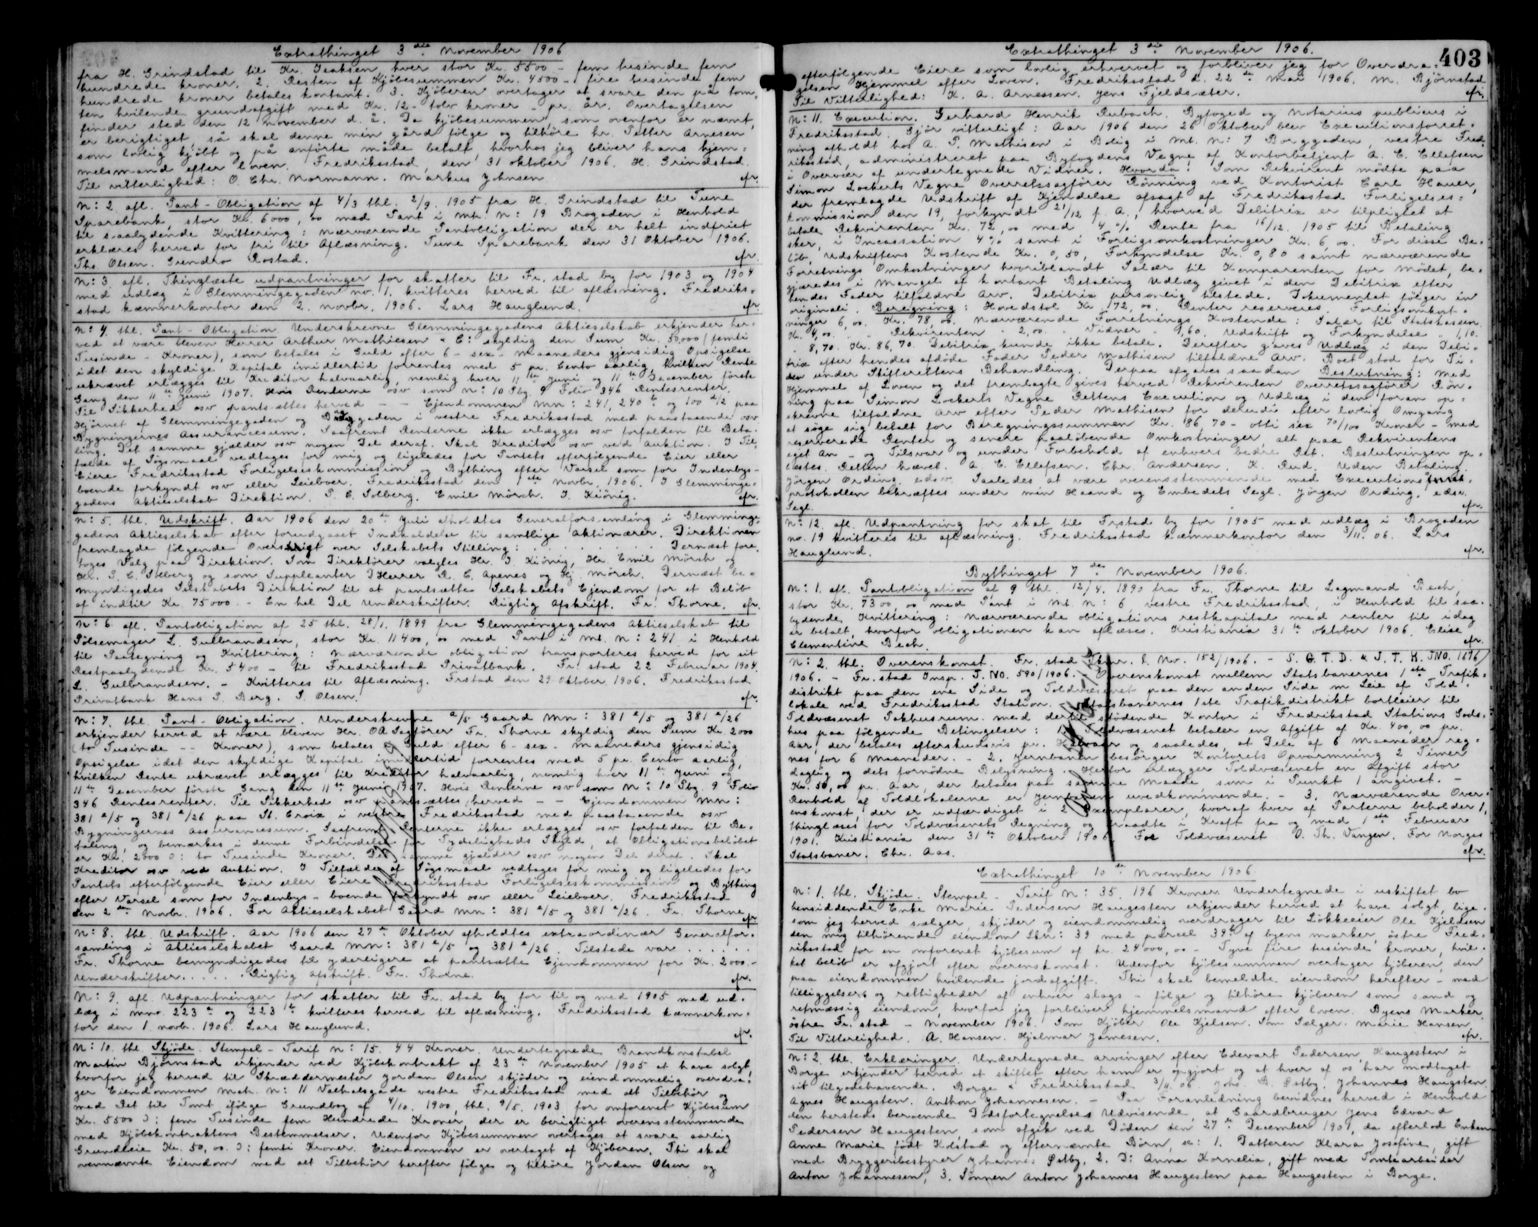 Extrathinget 3die November 1906
fra H. Grindstad til Kr. Isaksen hver stor Kr. 5500 - fem tusinde fem
hundrede kroner. 2 Resten af Kjöbesummen Kr. 4500 - fire tusinde fem
hundrede kroner betales kontant. 3. Kjöberen overtager å svare den på tom,
ten hvilende grundafgift med Kr. 12 - tolv kroner - pr. År. Overtagelsen
finder sted den 12 november d. å. Da kjöbesummen som ovenfor er nævnt,
er berigtiget, så skal denne min gård følge og tilhöre hr. Petter Arnesen
som lovlig kjöbt og på anförte måde betalt hvorhos jeg bliver hans hjem=
melsmand efter loven. Fredriksstad den 31 oktober 1906. H. Grindstad.
Til vitterlighed: O. Chr. Normann. Markus Johnsen
efr.
N: 2. afl. Pant-Obligation af 4/3 thl. 2/9. 1905 fra H. Grindstad til Tune
Sparebank stor Kr. 6000,00 med Pant i mtr. N: 19 Brogaden i Henhold
til saalydende Kvittering: nærværende Pantobligation der er helt indfriet
erklæres herved for fri til Aflæsning. Tune Sparebank den 31 Oktober 1906.
Ths Olsen. Svendro Rostad.
efr.
N: 3 afl. Thinglæste udpantninger for skatter til Fr. stad by for 1903 og 1904
med udlæg i Glemmingegaden no. 1, kvitteres herved til aflæsning. Fredriks-
stad kæmnerkontor den 2. novbr. 1906. Lars Hauglund.
efr
N: 4. thl. Pant-Obligation Underskrevne Glemmingegadens Aktieselskab erkjender her-
ved at være bleven Herrer Arthur Mathiesen & C: skyldig den Sum Kr. 50,000 (femti
Tusinde - Kroner), som betales i Guld efter 6 - sex - Maaneders gjensidig Opsigelse
idet den skyldige Kapital imidlertid forrentes med 5 pr. Cento aarlig, hvilken Rente
ukrævet erlægges til Kreditor halvaarlig, nemlig hver 11te Juni og 11te December förste
Gang den 11te Juni 1907. Hvis Renterne osv som N: 10 Pbg. 9 Folio 346 Rentesrenter.
Til Sikkerhed osv pantsættes herved - - Eiendommen Mn: 241, 240 b og 100 a/2 paa
Hjörnet af Glemmingegaden og Brogaden i vestre Fredriksstad med paastaaende osv
Bygningernes Assurancesum. Saafremt Renterne ikke erlægges osv forfalden til Beta-
ling. Det samme gjælder osv nogen Del deraf. Skal Kreditor osv ved Auktion. I Til,
fælde af Søgsmaal vedtages for mig og ligeledes for Pantets efterfølgende Eier eller
Eiere Fredriksstad Forligelseskommission og Bything efter Varsel som for Indenbys-
boende forkyndt osv eller Leieboer. Fredriksstad den 1ste Novbr. 1906. I Glemminge-
gadens Aktieselskab Direktion. P. C. Solberg. Emil Mörch. I. Kiönig.
efr.
N: 5. thl. Udskrift. Aar 1906 den 20de Juli afholdtes Generalforsamling i Glemminge-
gadens Aktieselskab efter forudgaaet Indkaldelse til samtlige Aktionærer. Direktionen
fremlagde følgende Oversigt over Selskabets Stilling: . . . . . Dernæst fore,
toges Valg paa Direktion. Som Direktörer valgtes Hr. I. Kiönig, Hr. Emil Mörch og
Hr. P. C. Solberg og som Suppleanter D'Herrer R. E. Apenes og Hj. Mörch. Dernæst be-
myndigedes Selskabets Direktion til at pantsætte Selskabets Ejendom for et Beløb
af indtil Kr. 75000. - En hel Del Underskrifter. Rigtig Afskrift. Fr. Thorne.
efr.
N: 6. afl. Pantobligation af 25 thl. 28/1. 1899 fra Glemmingegadens Aktieselskab til
Pölsemager L. Gulbrandsen, stor Kr. 11400,00 med Pant i mt. N: 241 i Henhold
til Paategning og Kvittering: Nærværende obligation transporteres herved for sit
Restpaalydende Kr. 5400 - til Fredriksstad Privatbank. Fr. stad 22 Februar 1904.
L. Gulbrandsen. - Kvitteres til Aflæsning. Frstad den 29 Oktober 1906. Fredriksstad
Privatbank Hans S. Berg. P. Olsen.
efr.
N: 7. thl. Pant-Obligation. Underskrevne A/S Gaard Mn: 381 a/5 og 381 a/26
erkjender herved at være bleven Hr. OR Sagförer Fr. Thorne skyldig den Sum Kr. 2000
(to Tusinde - - Kroner), som betales i Guld efter 6 - sex - maaneders gjensidig
Opsigelse idet den skyldige Kapital imidlertid forrentes med 5 pr. Cento aarlig,
hvilken Rente ukrævet erlægges til Kreditor halvaarlig, nemlig hver 11te Juni og
11te December förste Gang den 11te Juni 1907. Hvis Renterne osv som N: 10 Pbg. 9 Folio
346 Rentesrenter. Til Sikkerhed osv pantsættes herved - - Ejendommen Mn:
381 a/5 og 381 a/26 paa St. Croix i vestre Fredriksstad med paastaaende osv
Bygningernes Assurancesum. Saafremt Renterne ikke erlægges osv forfalden til Be-
taling, og bemærkes i denne Forbindelse for Tydeligheds Skyld, at Obligationsbeløbet
er Kr. 2000 : to Tusinde Kroner. Det samme gjælder osv nogen Del deraf. Skal
Kreditor osv ved Auktion. I Tilfælde af Søgsmaal vedtages for mig og ligeledes for
Pantets efterfølgende Eier eller Eiere Fredriksstad Forligelseskommission og Bything
efter Varsel som for Indenbys-boende forkyndt osv eller Leieboer. Fredriksstad
den 2den Novbr. 1906. For Aktieselskabet Gaard Mn: 381 a/5 og 381 a/26. Fr. Thorne.
efr
N: 8. thl Udskrift. Aar 1906 den 27de Oktober afholdtes extraordinær Generalfor-
samling i Aktieselskabet Gaard Mn: 381 a/5 og 381 a/26. Tilstede var . . . . .
Fr. Thorne bemyndigedes til yderligere at pantsætte Ejendommen for Kr. 2000.-
Underskrifter. . . . . Rigtig afskrift. Fr. Thorne.
efr.
N: 9. afl. Udpantninger for skatter til Fr. stad by for til og med 1905 med ud-
læg i mno. 223 a og 223 b kvitteres herved til aflæsning. Fredriksstad kæmnerkon-
tor den 1 novb. 1906. Lars Hauglund.
efr.
N: 10. thl Skjöde. Stempel-Tarif N: 15. 44 Kroner. Undertegnede Brandkonstabel
Martin Bjørnstad erkjender ved Kjöbekontrakt af 23de November 1905 at have solgt,
hvorfor jeg herved til Skræddermester Jordan Olsen skjöder og eiendommelig overdra,
ger Eiendommen Mat. N: 11 Valhalsgade vestre Fredriksstad med alt Tilbehör og
med Ret til Tomt ifølge Grundbog af 4/10. 1900, thl. 4/5. 1903 for omforenet Kjöbesum
Kr. 5500 : fem Tusinde fem Hundrede Kroner, der er berigtiget overensstemmende
med Kjöbekontraktens Bestemmelser. Udenfor Kjöbesummen overtages at svare aarlig
Grundleie Kr. 50,00 : femti Kroner. Eiendommen er overtaget af Kjöberen. Thi skal
ovennævnte Eiendom med alt Tilbehör herefter följe og tilhöre Jordan Olsen og
403
Extrathinget 3die November 1906.
efterfølgende Eiere som lovlig erhvervet og forbliver jeg for Overdra,
gelsen Hjemmel efter Loven. Fredriksstad d. 22de Mai 1906. M. Bjørnstad
Til Vitterlighed: K. A. Arnessen. Jens Fjeldsæter.
efr.
N: 11. Execution. Gerhard Henrik Rubach. Byfoged og Notarius publicus i
Fredriksstad. Gjör vitterligt: Aar 1906 den 26 Oktober blev Executionsforret-
ning afholdt hos A. P. Mathisen i Bolig i Mt. N: 7 Borggaden, vestre Fred-
riksstad, administreret paa Byfogdens Vegne af Kontorbetjent A. E. Ellefsen
i Overvær af undertegnede Vidner. Hvorda: Som Rekvirent mödte paa
Simon Lockerts Vegne Overretssagförer Rönning ved Kontorist Carl Hauer,
der fremlagde Udskrift af Kjendelse afsagt af Fredriksstad Forligelses=
kommission den 19, forkyndt 21/12 f. A., hvorved Debitrix er tilpligtet at
betale Rekvirenten Kr. 72,00 med 4% Rente fra 14/12. 1905 til Betaling
sker, i Incassation 4% samt i Forligsomkostninger Kr. 6,00. For disse Be-
löb, Udskriftens Kostende Kr. 0,50, Forkyndelse Kr. 0,80 samt nærværende
Forretnings Omkostninger hvoriblandt Salær til Komparenten for Mödet, be-
gjæredes i Mangel af kontant Betaling Udlæg givet i den Debitrix efter
hendes Fader tilfaldne Arv. Debitrix personlig tilstede. Dokumentet følger in
originali. Beregning: Hovedstol Kr. 72,00. Renter reserveres. Forligsomkost-
ninger 6,00. Kr. 78,00. Nærværende Forretnings Kostende: Salær til Statskassen
Kr. 4,00. Rekvirenten - 2,00. Vidner - 1,60. Udskrift og Forkyndelse - 1,10.
- 8,70. Kr. 86,70. Debitrix kunde ikke betale. Derefter gaves Udlæg i den Debi-
trix efter hendes afdöde Fader Peder Mathisen tilfaldne Arv. Boet stod for Ti-
den under Skifterettens Behandling. Derpaa afgaves saadan Beslutning: Med
Hjemmel af Loven og det fremlagte gives herved Rekvirenten Overretssagförer Rön-
ning paa Simon Lockerts Vegne Rettens Execution og Udlæg i den foran op-
skrevne tilfaldne Arv efter Peder Mathisen for deludi efter lovlig Omgang
at söge sig betalt for Beregningssummen Kr. 86,70 - otti sex 70/100 Kroner - med
reserverede Renter og senere paaløbende Omkostninger, alt paa Rekvirentens
eget An- og Tilsvar og under Forbehold af enhvers bedre Ret. Beslutningen op-
læstes. Retten hævet. A. E. Ellefsen. Chr. Andersen. K. Rud. Uden Betaling.
Jörgen Ording, edsv. Saaledes at være overensstemmende med Executions-
protokollen bekræftes under min Haand og Embedets Segl. Jörgen Ording, edsv.
Segl.
efr.
N: 12. afl. Udpantning for skat til Frstad by for 1905 med udlæg i Brogaden
no. 19 kvitteres til aflæsning. Fredriksstad kæmnerkontor den 3/11. 06. Lars
Hauglund.
efr.
Bythinget 7de November 1906.
N: 1. afl. Pantobligation af 9 thl. 12/4. 1890 fra Fr. Thorne til Lagmand Bech,
stor Kr. 7300,00 med Pant i mt. N: 6 vestre Fredriksstad, i Henhold til saa-
lydende Kvittering: nærværende obligations restkapital med renter til idag
er betalt, hvorfor obligationen kan aflæses. Kristiania 31te oktober 1906. Elise
Clementine Bech.
efr
N: 2. thl. Overenskomst. Fr. stad J. No. 152/1906. - S. G. T. D. & J. T. K. JNO. 1696/
1906. - Fr. stad Insp. J. No. 590/1906. - Overenskomst mellem Statsbanernes 1ste Trafik-
distrikt paa den ene Side og Toldvæsenet paa den anden Side om Leie af Told-
lokale ved Fredriksstad Station. Statsbanernes 1ste Trafikdistrikt bortleier til
Toldvæsenet Pakhusrum med dertil stödende Kontor i Fredriksstad Stations Gods-
hus paa følgende Betingelser: 1. Toldvæsenet betaler en Afgift af Kr. 400,00 pr.
Aar, der betales efterskudsvis pr. Halvaar og saaledes, at Dele af 6 Maaneder reg-
nes for 6 Maaneder. - 2. Jernbanen besörger Kontorets Opvarmning 2 Timer
daglig og dets fornödne Belysning. Herfor erlægger Toldvæsenet en Afgift stor
Kr. 50,00 pr. Aar, der betales paa samme Maade som i Punkt 1 angivet. -
Renhold af Toldlokalerne er Jernbanen uvedkommende. - 3. Nærværende Over-
enskomst, der er udfærdiget i 2 Exemplarer, hvoraf hver af Parterne beholder 1,
thinglæses for Toldvæsenets Regning og traadte i Kraft fra og med 1ste Februar
1901. Kristiania den 31te Oktober 1906. For Toldvæsenet O. Th. Tangen. For Norges
Statsbaner. Chr. Aas.
efr.
Extrathinget 10de November 1906
N: 1. thl. Skjöde. Stempel-Tarif N: 35 196 Kroner. Undertegnede i uskiftet bo
hensiddende Enke Marie Pedersen Haugesten erkjender herved at have solgt, lige-
som jeg herved sælger, skjöder og eiendommelig overdrager til Lökkeeier Ole Kjölsen
den mig tilhörende eiendom Lkn: 39 med parcel 39 b af byens marker, östre Fred-
rikstad for en omforenet kjöbesum af kr. 24000,00 - Tyve fire tusinde kroner, hvil-
ket belöb er afgjort efter overenskomst. Udenfor kjöbesummen overtager kjöberen, den
paa eiendommen hvilende jordafgift. Thi skal bemeldte eiendom herefter - med
tilliggelser og rettigheder af enhver slags - følge og tilhöre kjöberen som sand og
retmæssig eiendom, hvorfor jeg forbliver hjemmelsmand efter loven. Byens Marker,
östre Fr. stad - November 1906. Som Kjöber Ole Kjölsen. Som Sælger. Marie Hansen.
Til Vitterlighed. A. Hansen. Hjalmar Jamesen.
efr.
N: 2 thl. Erklæringer. Undertegnede arvinger efter Edevart Pedersen, Haugesten i
Borge erkjender herved at skiftet efter ham er opgjort og at hver af os har modtaget
sit tilgodehavende. Borge & Fredriksstad 3/11. 06. Johs. B. Østby. Johannes Haugsten.
Agnes Haugsten. Anthon Johannesen. - Paa Foranledning bevidnes herved i Henhold
den herstedsberoende Dødsfortegnelses Udvisende, at Gaardbruger Jens Edvard
Pedersen Haugesten som afgik ved Døden den 27de December 1901, da efterlod Enken
Anne Marie født Kolstad og efternævnte Børn, sc: 1. Datteren Klara Josefine, gift
med Bryggeribestyrer Johannes Østby. 2. D: Anna Kornelia, gift med Tomtearbeider
Anton Johannesen, 3. Sønnen Anton Johannes Haugesten paa Haugesten i Borge.